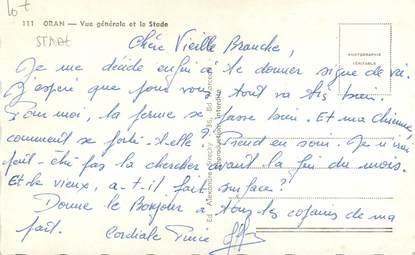 Lot
111 ORAN — Vue générale et le Stade
STADE
PHOTOGRAPHIE
VÉRITABLE
Chère Vieille Branche,
Je me décide enfin à te donner signe de vie.
J'espère que pour vous tout va très bien.
Pour moi, la ferme se passe bien. Et ma chienne
comment se porte-t-elle? Prend en soin. Je n'irai
peut-être pas la chercher avant la fin du mois.
Et de vieux, a-t-il fait surface?
Donne le Bonjour à tous les copains de ma
part.
Cordiale
Reproduction Interdite